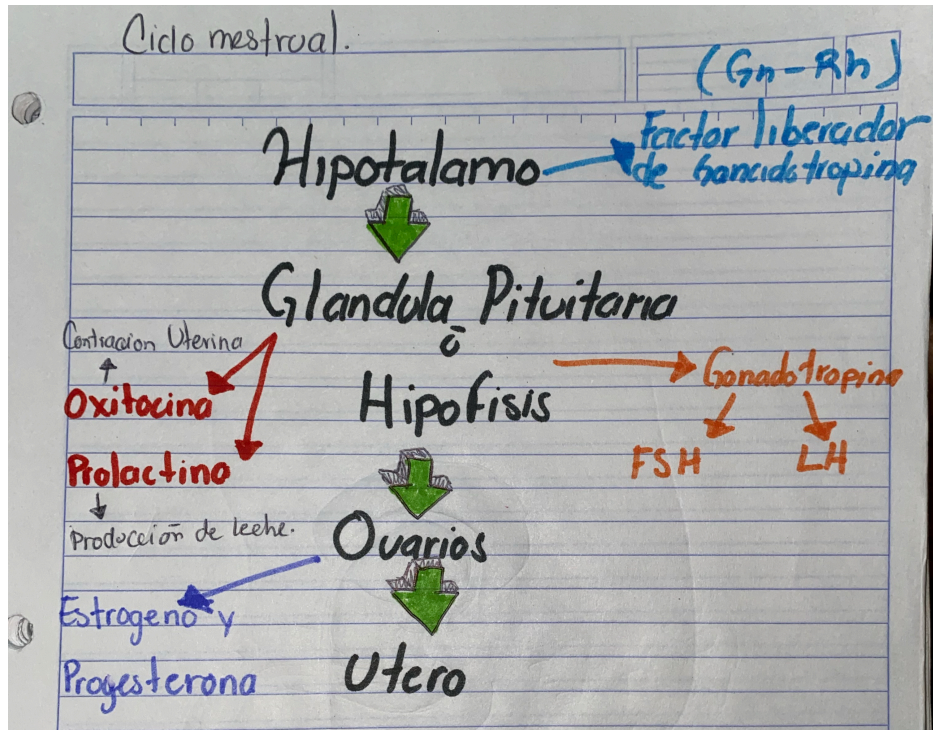 Ciclo mestrual.
(Gn-Rh)
Factor liberador
de Gancidotropina
Hipotalamo
Glandula Pituitaria
ò
Hipofisis
Contracion Uterina
Oxitocina
Prolactina
Producción de leche.
Gonadotropina
FSH LH
Ovarios
Estrogeno y
Progesterona
Utero